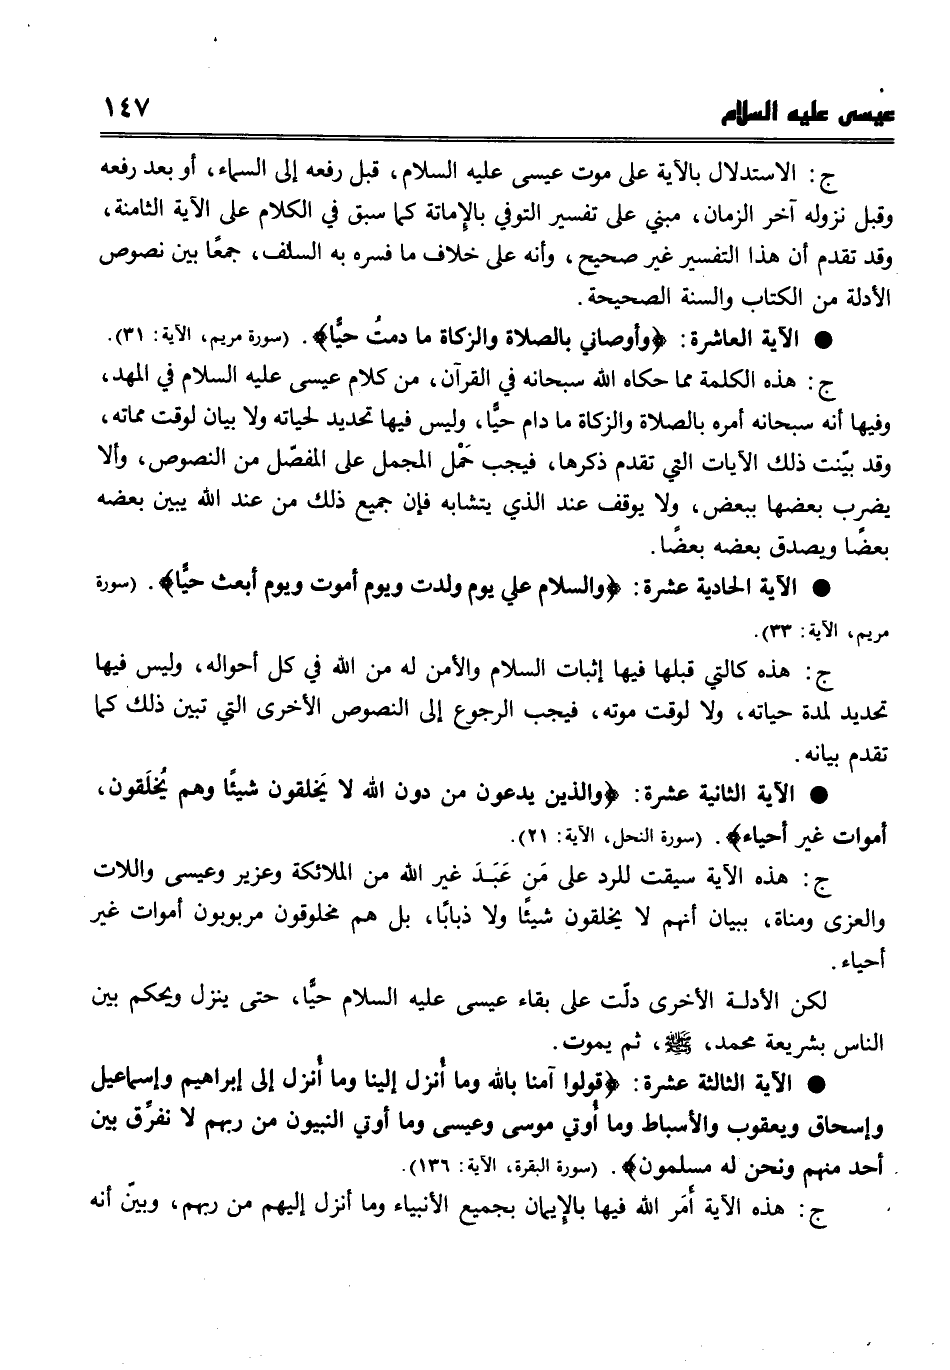 عيسى عليه السلام ١٤٧
ج: الاستدلال بالآية على موت عيسى عليه السلام، قبل رفعه إلى السماء، أو بعد رفعه
وقبل نزوله آخر الزمان، مبني على تفسير التوفي بالإماتة كما سبق في الكلام على الآية الثامنة،
وقد تقدم أن هذا التفسير غير صحيح، وأنه على خلاف ما فسره به السلف، جمعًا بين نصوص
الأدلة من الكتاب والسنة الصحيحة.
● الآية العاشرة: ﴿وأوصاني بالصلاة والزكاة ما دمتُ حيًّا﴾. (سورة مريم، الآية: ٣١).
ج: هذه الكلمة مما حكاه الله سبحانه في القرآن، من كلام عيسى عليه السلام في المهد،
وفيها أنه سبحانه أمره بالصلاة والزكاة ما دام حيًّا، وليس فيها تحديد لحياته ولا بيان لوقت مماته،
وقد بيّنت ذلك الآيات التي تقدم ذكرها، فيجب حَمْل المجمل على المفصّل من النصوص، وألا
يضرب بعضها ببعض، ولا يوقف عند الذي يتشابه فإن جميع ذلك من عند الله يبين بعضه
بعضًا ويصدق بعضه بعضًا.
● الآية الحادية عشرة: ﴿والسلام علي يوم ولدت ويوم أموت ويوم أبعث حيًّا﴾. (سورة
مريم، الآية: ٣٣).
ج: هذه كالتي قبلها فيها إثبات السلام والأمن له من الله في كل أحواله، وليس فيها
تحديد لمدة حياته، ولا لوقت موته، فيجب الرجوع إلى النصوص الأخرى التي تبين ذلك كما
تقدم بيانه.
● الآية الثانية عشرة: ﴿والذين يدعون من دون الله لا يَخلقون شيئًا وهم يُخلَقون،
أموات غير أحياء﴾. (سورة النحل، الآية: ٢١).
ج: هذه الآية سيقت للرد على مَن عَبَدَ غير الله من الملائكة وعزير وعيسى واللات
والعزى ومناة، ببيان أنهم لا يخلقون شيئًا ولا ذبابًا، بل هم مخلوقون مربوبون أموات غير
أحياء.
لكن الأدلة الأخرى دلّت على بقاء عيسى عليه السلام حيًّا، حتى ينزل ويحكم بين
الناس بشريعة محمد، ﷺ، ثم يموت.
● الآية الثالثة عشرة: ﴿قولوا آمنا بالله وما أُنزل إلينا وما أُنزل إلى إبراهيم وإسماعيل
وإسحاق ويعقوب والأسباط وما أُوتي موسى وعيسى وما أوتي النبيون من ربهم لا نفرِّق بين
أحد منهم ونحن له مسلمون﴾. (سورة البقرة، الآية: ١٣٦).
ج: هذه الآية أَمَر الله فيها بالإيمان بجميع الأنبياء وما أنزل إليهم من ربهم، وبيّن أنه